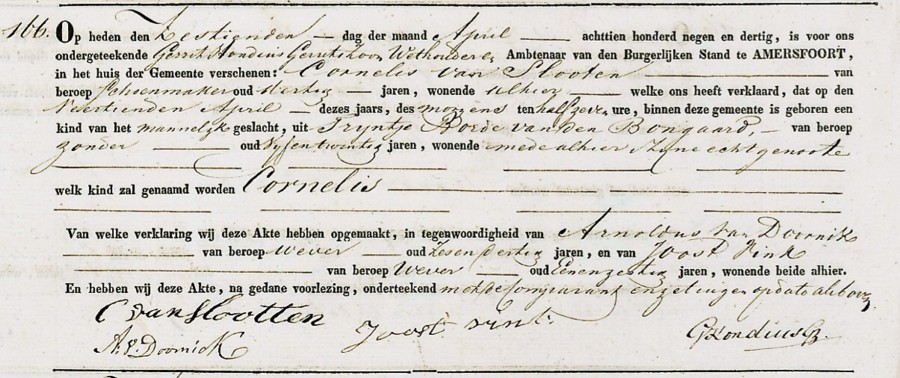 166. Op heden den Zestienden dag der maand April achttien honderd negen en dertig, is voor ons
ondergeteekende Gerrit Hondius Gerritszoon Wethouder Ambtenaar van den Burgerlijken Stand te AMERSFOORT,
in het huis der Gemeente verschenen: Cornelis van Slooten van
beroep Schoenmaker oud dertig jaren, wonende alhier welke ons heeft verklaard, dat op den
Veertienden April dezes jaars, des morgens ten half zeven ure, binnen deze gemeente is geboren een
kind van het mannelijk geslacht, uit Tryntje Roede van den Bongaard, van beroep
zonder oud Vyfentwintig jaren, wonende mede alhier Zyne echtgenoote
welk kind zal genaamd worden Cornelis
Van welke verklaring wij deze Akte hebben opgemaakt, in tegenwoordigheid van Arnoldus van Doornik
van beroep Wever oud Zesendertig jaren, en van Joost Pink
van beroep Wever oud Eenenzestig jaren, wonende beide alhier.
En hebben wij deze Akte, na gedane voorlezing, onderteekend met de Comparant en getuigen op dato als boven
C van Slootten
Joost
A. V. Doornick
GHondiusGz.